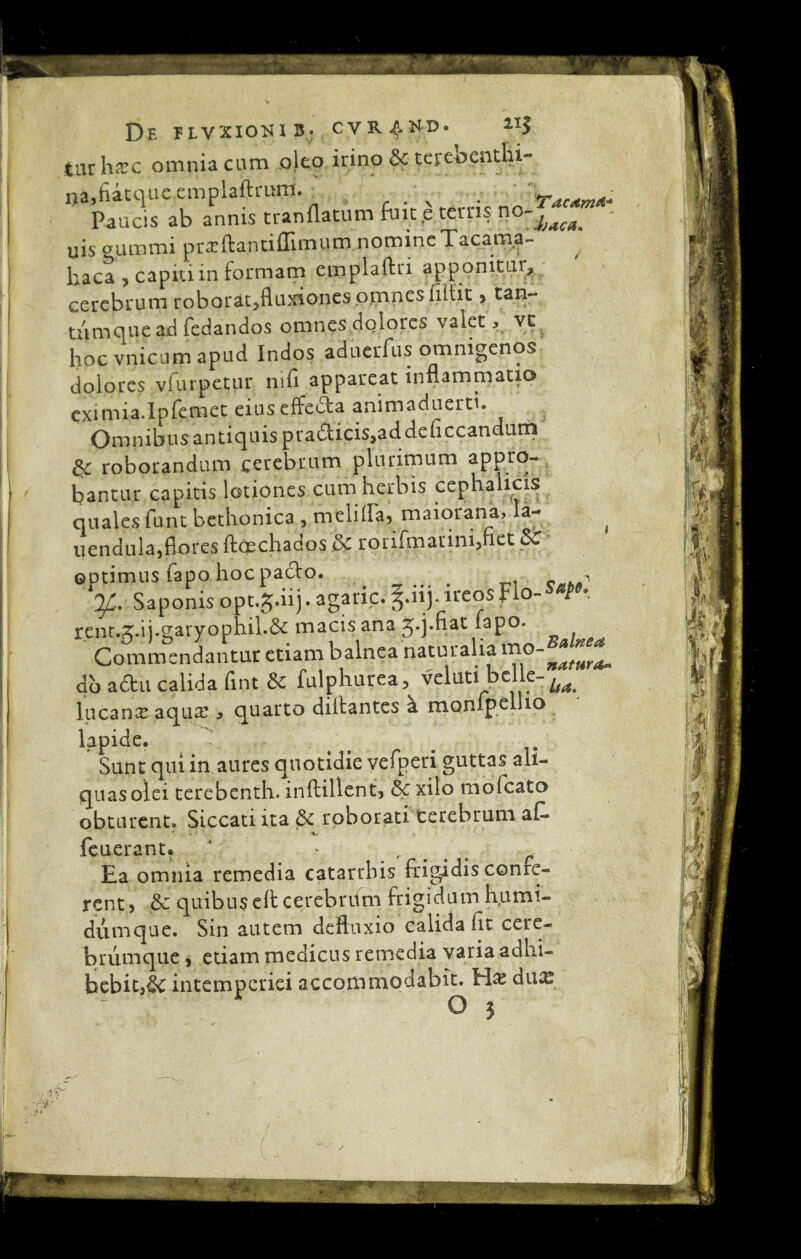 DE FLVXIONIB. CVRAND. 215
tur hæc omnia cum oleo irino & terebenthi-
na, fiátque emplastrum.
Paucis ab annis translatum fuit è terris no- Tacama-
uis gummi præstantissimum nomine Tacama- haca.
haca, capiti in formam emplastri apponitur,
cerebrum roborat, fluxiones omnes sistit, tan-
túmque ad sedandos omnes dolores valet, vt
hoc vnicum apud Indos aduersus omnigenos
dolores vsurpetur nisi appareat inflammatio
eximia. Ipsemet eius effecta animaduerti.
Omnibus antiquis practicis, ad deficcandum
& roborandum cerebrum plurimum appro-
bantur capitis lotiones cum herbis cephalicis
quales sunt bethonica, melissa, maiorana, la-
uendula, flores stœchados & rorismarini, fiet &
optimus sapo hoc pacto.
℞. Saponis opt.℥.iij. agaric. ℥.iij. ireos Flo- Sapo.
rent.ʒ.ij. garyophil. & macis ana ʒ.j. fiat sapo.
Commendantur etiam balnea naturalia mo- Balnea
dò actu calida sint & sulphurea, veluti belle- natura-
lucanæ aquæ, quarto distantes à monspellio lia.
lapide.
Sunt qui in aures quotidie vesperi guttas ali-
quas olei terebenth. instillent, & xilo moscato
obturent. Siccati ita & roborati cerebrum as-
seuerant.
Ea omnia remedia catarrhis frigidis confe-
rent, & quibus est cerebrum frigidum humi-
dúmque. Sin autem defluxio calida sit cere-
brúmque, etiam medicus remedia varia adhi-
bebit, & intemperiei accommodabit. Hæ duæ
O 3